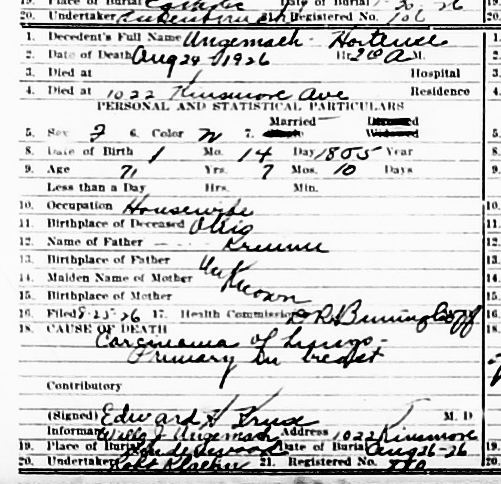 19. Place of Burial Date of Burial 30-26
20. Undertaker 21. Registered No. 106
1. Decedent's Full Name Ungemach Hortense
2. Date of Death Aug 24 - 1926 Hr. 2 A M.
3. Died at Hospital
4. Died at 1022 Kinsmore Ave Residence
PERSONAL AND STATISTICAL PARTICULARS
Married
5. Sex F 6. Color W 7. Single Widowed
8. Date of Birth 1 Mo. 14 Day 1855 Year
9. Age 71 Yrs. 7 Mos. 10 Days
Less than a Day Hrs. Min.
10. Occupation Housewife
11. Birthplace of Deceased Ohio
12. Name of Father
13. Birthplace of Father
14. Maiden Name of Mother Unknown
15. Birthplace of Mother
16. Filed 8-25-26 17. Health Commissioner
18. CAUSE OF DEATH
Carcinoma of Lungs -
Primary in breast
Contributory
(Signed) Edward H M. D
Informant Ungemach Address 1022 Kinsmore
19. Place of Burial Lindenwood Date of Burial Aug 26-26
20. Undertaker Robt Klaehn 21. Registered No.